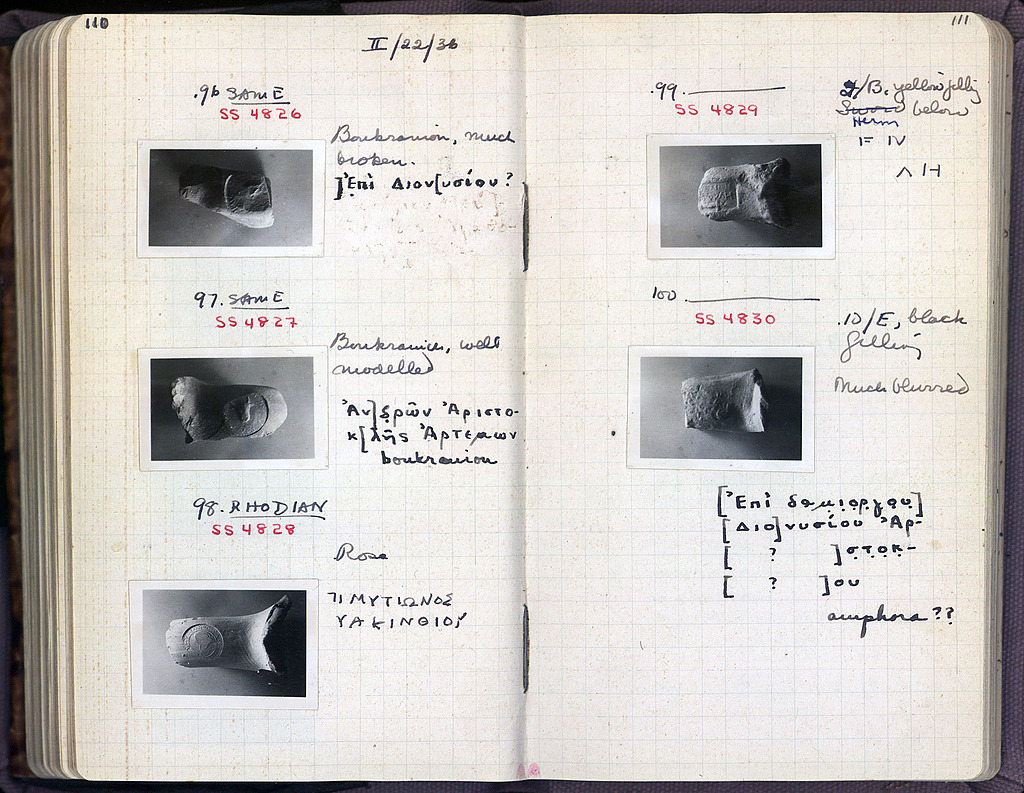 110
II/22/36
.96 SAME
SS 4826
Boukranion, much
broken.
]Ἐπὶ Διον[υσίου?
97. SAME
SS 4827
Boukranion, well
modelled
Ἀν]δρῶν Ἀριστο-
κ[λῆς Ἀρτεμων
boukranion
98. RHODIAN
SS 4828
Rose
ΜΥΤΙΩΝΟΣ
ΥΑΚΙΝΘΙΟΥ
111
.99.
SS 4829
/B. yellow filling
Sword below
Herm
IF IV
Λ Η
100
SS 4830
.10/E, black
filling
Much blurred
[Ἐπὶ δαμιοργοῦ]
[Διο]νυσίου Ἀρ-
[ ? ]στοκ-
[ ? ]ου
amphora ??